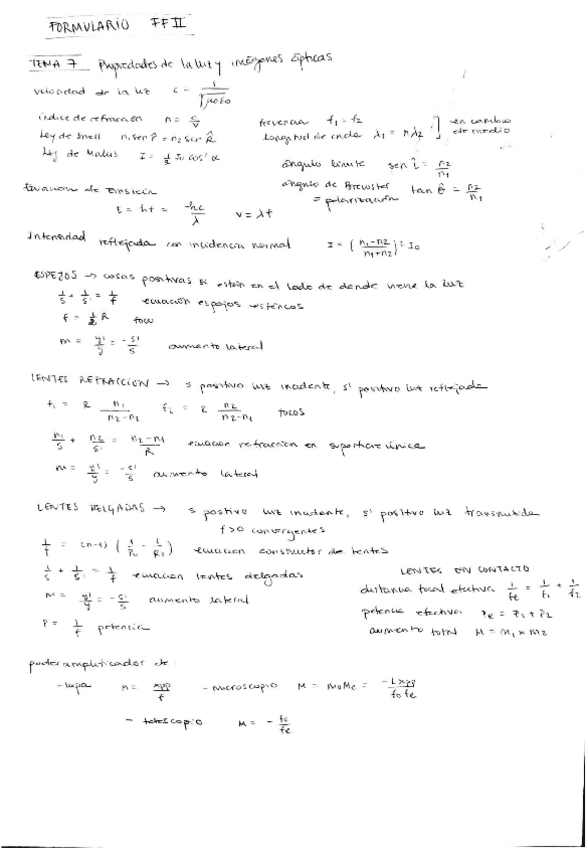 FORMULARIO FFII
TEMA 7 Propiedades de la luz y imágenes ópticas
velocidad de la luz c = 1/√μ0ε0
índice de refracción n = c/v
frecuencia f1 = f2
longitud de onda λ1 = nλ2 ] en cambio de medio
Ley de Snell n1 sen î = n2 sen R̂
Ley de Malus I = 1/2 I0 cos² α
ángulo límite sen î = n2/n1
ángulo de Brewster = polarización tan θ̂ = n2/n1
Ecuación de Einstein
E = hf = hc/λ v = λf
Intensidad reflejada con incidencia normal I = (n1-n2/n1+n2)² I0
ESPEJOS → cosas positivas si están en el lado de donde viene la luz
1/s + 1/s' = 1/f ecuación espejos esféricos
f = 1/2 R foco
m = y'/y = -s'/s aumento lateral
LENTES REFRACCION → s positivo luz incidente, s' positivo luz reflejada
f1 = R n1/n2-n1 f2 = R n2/n2-n1 focos
n1/s + n2/s' = n2-n1/R ecuación refracción en superficie única
m = y'/y = -s'/s aumento lateral
LENTES DELGADAS → s positivo luz incidente, s' positivo luz transmitida
f>0 convergentes
1/f = (n-1) (1/R1 - 1/R2) ecuacion constructor de lentes
1/s + 1/s' = 1/f ecuación lentes delgadas
m = y'/y = -s'/s aumento lateral
P = 1/f potencia
LENTES EN CONTACTO
distancia focal efectiva 1/fe = 1/f1 + 1/f2
potencia efectiva Pe = P1 + P2
aumento total M = m1 × m2
poder amplificador de:
- lupa m = xpp/f - microscopio M = moMe = -Lxpp/fofe
- telescopio M = - fo/fe